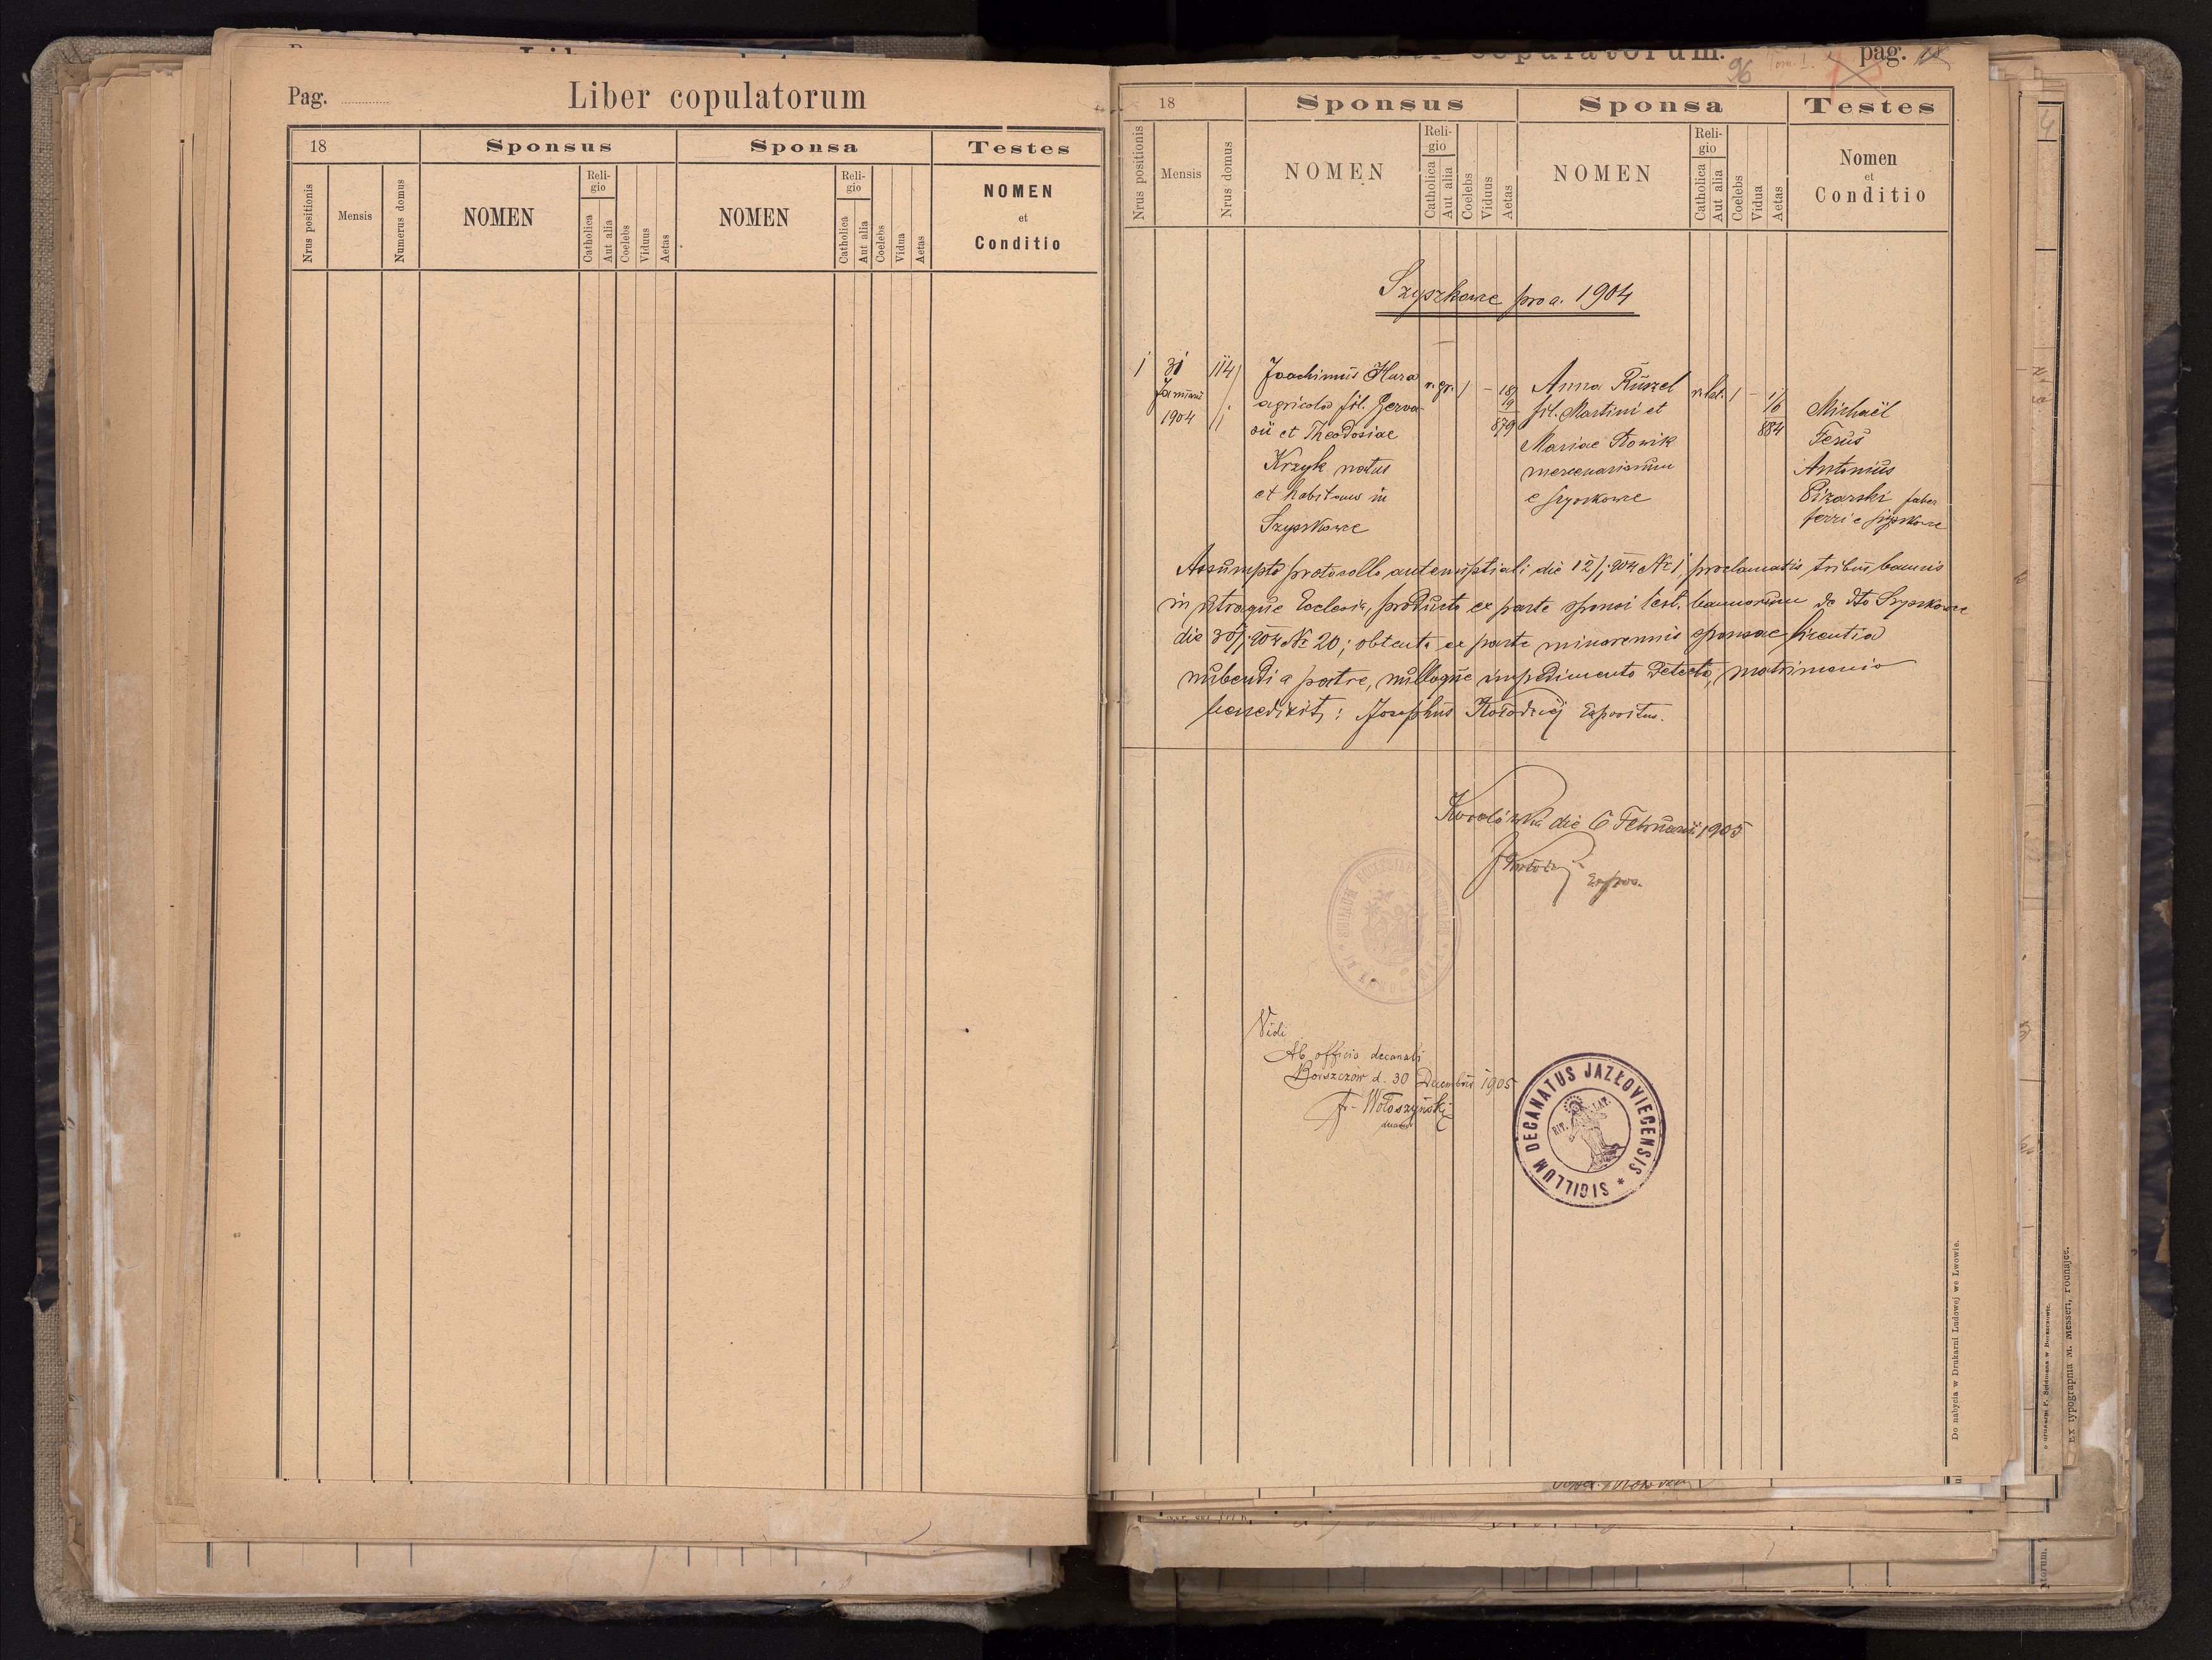 Pag.
Liber copulatorum
18
Sponsus
Sponsa
Testes
Nrus positionis
Mensis
Numerus domus
NOMEN
Reli-
gio
Catholica
Aut alia
Coelebs
Viduus
Aetas
NOMEN
Reli-
gio
Catholica
Aut alia
Coelebs
Vidua
Aetas
NOMEN
et
Conditio
copulatorum.
96
Tom. I.
pag.
18
Sponsus
Sponsa
Testes
Nrus positionis
Mensis
Nrus domus
NOMEN
Reli-
gio
Catholica
Aut alia
Coelebs
Viduus
Aetas
NOMEN
Reli-
gio
Catholica
Aut alia
Coelebs
Vidua
Aetas
Nomen
et
Conditio
Szyszkowce pro a. 1904
1
31
Januarii
1904
114
Joachimus Hura
agricola fil. Gerva-
sii et Theodosiae
Krzyk natus
et habitans in
Szyszkowce
r. gr. 1 – 18/
19
879
Anna Ruszel
fil. Martini et
Mariae Nowik
mercenariorum
e Szyszkowce
r. lat. 1 – 1/6
884
Michaël
Ferus
Antonius
Pizarski faber
ferri e Szyszkowce
Assumpto protocollo antenuptiali die 12/1 904 Nr 1, proclamatis tribus bannis
in utraque Ecclesia, producto ex parte sponsi test. bannorum de dto Szyszkowce
die 30/1 904 Nr 20; obtenta ex parte minorennis sponsae licentia
nubendi a patre, nulloque impedimento detecto, matrimonio
benedixit: Josephus Kołodziej Expositus.
Korolówka die 6 Februarii 1905
J Kołodziej
Expos.
Vidi
Ab officio decanali
Borszczów d. 30 Decembris 1905
Fr. Wołoszyński
decanus
SIGILLUM DECANATUS JAZŁOVIECENSIS *
RIT. LAT.
Do nabycia w Drukarni Ludowej we Lwowie.
Ex typographia M. Messeri, Podhajce.